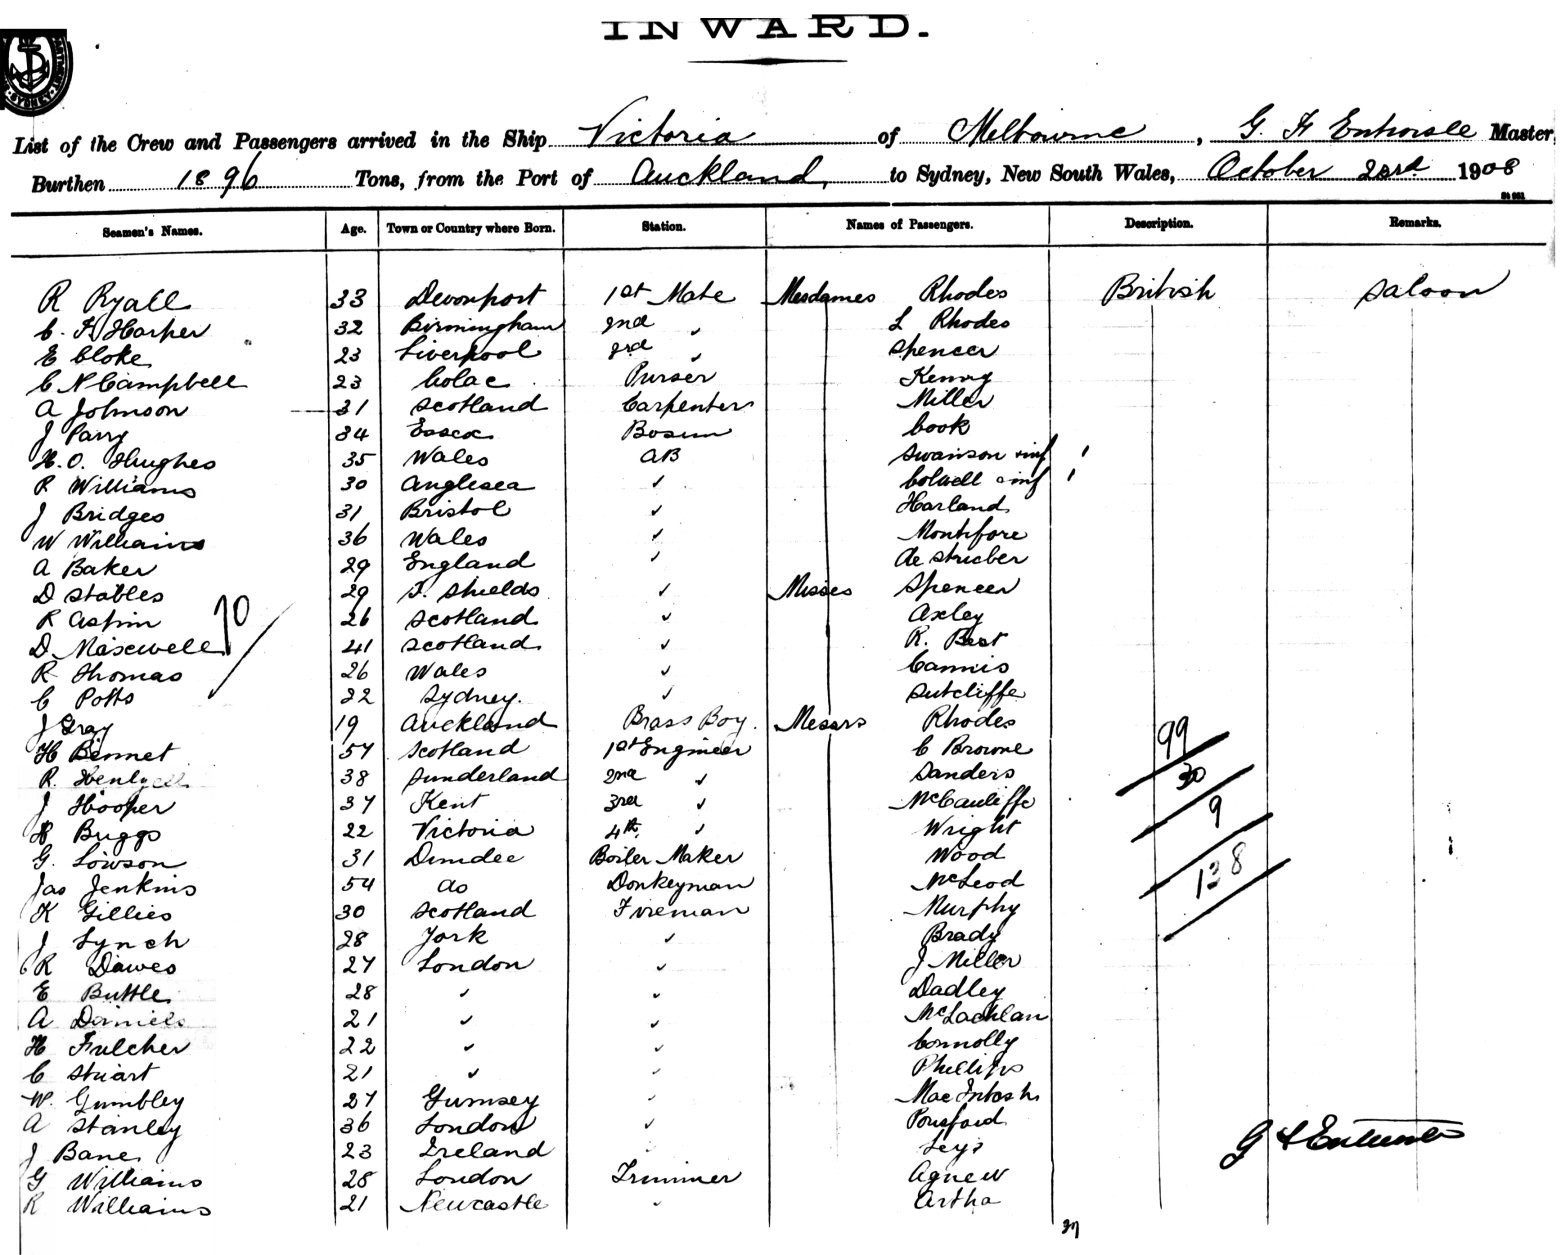 INWARD.
List of the Crew and Passengers arrived in the Ship Victoria of Melbourne, G. F Entwisle Master,
Burthen 1896 Tons, from the Port of Auckland, to Sydney, New South Wales, October 23rd 1908
Seamen's Names. Age. Town or Country where Born. Station. Names of Passengers. Description. Remarks.
R Ryall 33 Devonport 1st Mate Mesdames Rhodes British Saloon
C. F. Harper 32 Birmingham 2nd " L Rhodes
E Cloke 23 Liverpool 3rd " Spencer
C N Campbell 23 Colac Purser Kenny
A Johnson 31 Scotland Carpenter Miller
J Parry 34 Essex Bosun Cook
H. O. Hughes 35 Wales AB Swanson & inf 1
R Williams 30 Anglesea " Colwell & inf 1
J Bridges 31 Bristol " Harland
W Williams 36 Wales " Montifore
A Baker 29 England " de
D Stables 29 S. Shields " Misses Spencer
R Aspin 26 Scotland " Axley
D Maxwell 41 Scotland " R. Best
R Thomas 26 Wales " Cannis
C Potts 22 Sydney. " Sutcliffe
70
J Gray 19 Auckland Brass Boy. Messrs Rhodes
H Bennet 57 Scotland 1st Engineer C Browne 99
R. 38 Sunderland 2nd " Sanders 30
J Hooper 37 Kent 3rd " McCauliffe
H Briggs 22 Victoria 4th " Wright 9
G. Lowson 31 Dundee Boiler Maker Wood
Jas Jenkins 54 do Donkeyman McLeod 138
K Gillies 30 Scotland Fireman Murphy
J Lynch 28 York " Brady
R Dawes 27 London " J Miller
E Buttle 28 " " Dadley
A Daniels 21 " " McLachlan
H Fulcher 22 " " Connolly
C Stuart 21 " " Phillips
W. Gumbley 27 Gurnsey " MacIntosh
A Stanley 36 London " Ponsford
J Bane 23 Ireland Leys G F Entwisle
G Williams 28 London Trimmer Agnew
R Williams 21 Newcastle " Artha
37